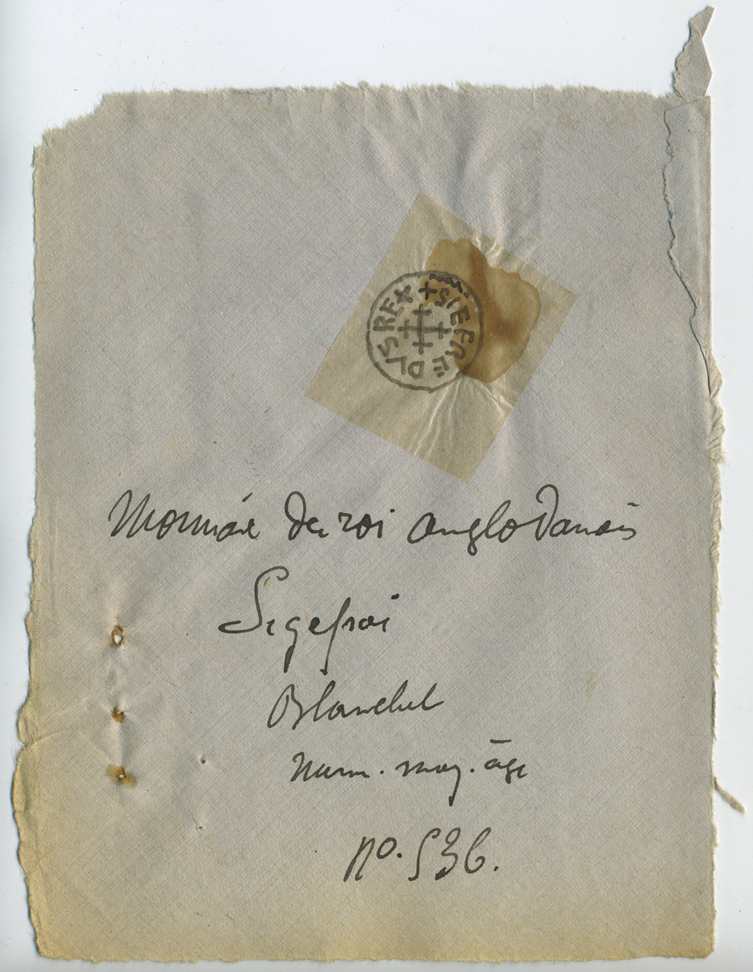 +SIEFREDVS REX
Monnaie du roi anglo Danois
Sigefroi
Blanchet
Num. moy. âge
no. 536.